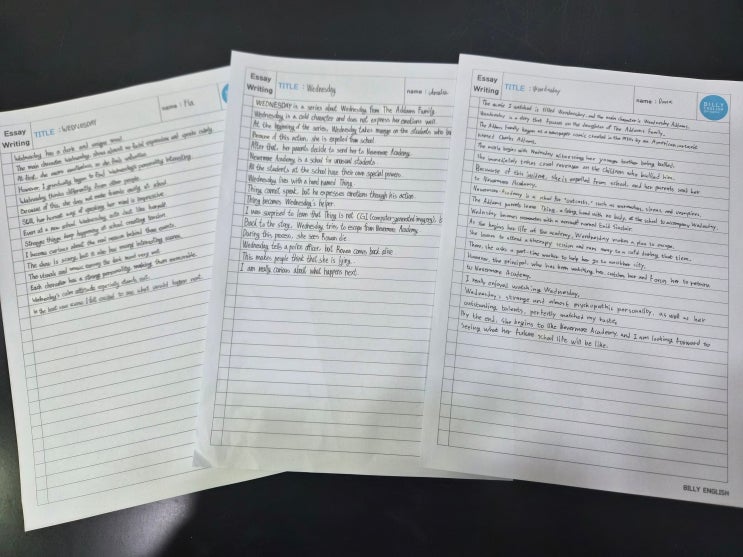 Essay Writing
TITLE : WEDNESDAY
name :
Wednesday has a dark and unique mood.
The main character, Wednesday, shows almost no facial expressions and speaks calmly.
At first, she seems emotionless
However, I gradually began to find Wednesday's personality interesting.
Wednesday thinks differently from other people.
Because of this, she does not make friends easily at school.
Still, her honest way of speaking her mind is impressive.
Even at a new school, Wednesday acts just like herself.
Strange things keep happening at school, creating tension.
I became curious about the real reason behind these events.
The show is scary, but it also has many interesting scenes.
The and music the dark mood very well.
Each character has a strong personality, making them memorable.
Wednesday's calm attitude especially stands out.
I felt excited to see what would happen next.
Essay Writing
TITLE : Wednesday
name :
WEDNESDAY is a series about Wednesday from The Addams Family.
Wednesday is a cold character and does not express her emotions well.
At the beginning of the series, Wednesday takes revenge on the students who
Because of this action, she is expelled from school.
After that, her parents decide to send her to Nevermore Academy.
Nevermore Academy is a school for unusual students.
All the students at the school have their own special powers.
Wednesday lives with a hand named Thing.
Thing cannot speak, but he expresses emotions through his action.
Thing becomes Wednesday's helper.
I was surprised to learn that Thing is not CGI (computer-generated imagery),
Back to the story, Wednesday tries to escape from Nevermore Academy.
During this process, she sees Rowan die.
Wednesday tells a police officer, but Rowan comes back alive.
This makes people think that she is lying.
I am really curious about what happens next.
Essay Writing
TITLE : Wednesday
name :
BILLY ENGLISH
The movie I watched is titled Wednesday, and the main character is Wednesday Addams.
Wednesday is a story that focuses on the daughter of The Addams Family.
The Addams Family began as a newspaper comic created in the 1930s by an American cartoonist
named Charles Addams.
The movie begins with Wednesday witnessing her younger brother being bullied.
She immediately takes cruel revenge on the children who bullied him.
Because of this incident, she is expelled from school, and her parents send her
to Nevermore Academy.
Nevermore Academy is a school for "outcasts," such as werewolves, sirens and vampires.
The Addams parents leave Thing, a living hand with no body, at the school to accompany Wednesday.
Wednesday becomes roommates with a werewolf named Enid Sinclair.
As she begins her life at the academy, Wednesday makes a plan to escape.
She leaves to attend a therapy session and runs away to a café during that time.
There, she asks a part-time worker to help her go to another city.
However, the principal, who has been watching her, catches her and forces her to return
to Nevermore Academy.
I really enjoyed watching Wednesday.
Wednesday's strange and almost psychopathic personality, as well as her
outstanding talents, perfectly matched my taste.
By the end, she begins to like Nevermore Academy, and I am looking forward to
seeing what her future school life will be like.
BILLY ENGLISH